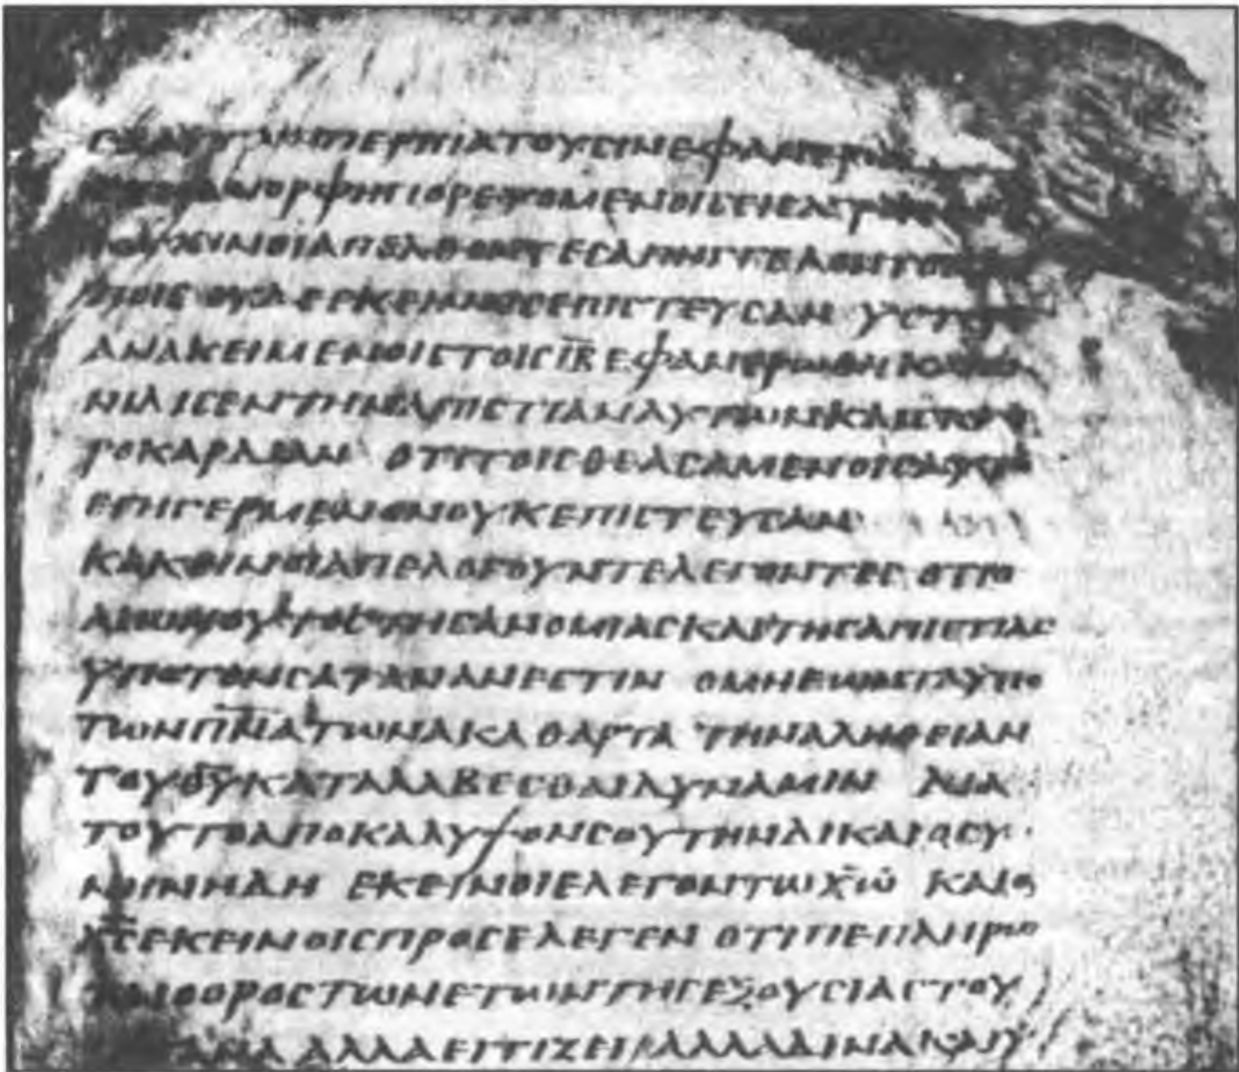 ΑΥΤΩΝΠΕΡΙΠΑΤΟΥCΙΝΕΦΑΝΕΡΩ
ΜΟΡΦΗΠΟΡΕΥΟΜΕΝΟΙCΕΙCΑΓΡΟΝ
ΚΑΚΙΝΟΙΑΠΕΛΘΟΝΤΕCΑΠΗΓΓΕΙΛΑΝΤΟΙC
ΠΟΙCΟΥΔΕΕΚΕΙΝΟΙCΕΠΙCΤΕΥCΑΝ ΥCΤΕΡΟΝ
ΑΝΑΚΕΙΜΕΝΟΙCΤΟΙCΙΑΕΦΑΝΕΡΩΘΗΚΑΙΩ
ΝΙΔΙCΕΝΤΗΝΑΠΙCΤΙΑΝΑΥΤΩΝΚΑΙCΚΛΗ
ΡΟΚΑΡΔΙΑΝ ΟΤΙΤΟΙCΘΕΑCΑΜΕΝΟΙCΑΥΤΟΝ
ΕΓΗΓΕΡΜΕΝΟΝΟΥΚΕΠΙCΤΕΥCΑΝ
ΚΑΚΕΙΝΟΙΑΠΕΛΟΓΟΥΝΤΕΛΕΓΟΝΤΕC ΟΤΙΟ
ΑΙΩΝΟΥΤΟCΤΗCΑΝΟΜΙΑCΚΑΙΤΗCΑΠΙCΤΙΑC
ΥΠΟΤΟΝCΑΤΑΝΑΝΕCΤΙΝ ΟΜΗΕΩΝΤΑΥΠΟ
ΤΩΝΠΝΑΤΩΝΑΚΑΘΑΡΤΑ ΤΗΝΑΛΗΘΕΙΑΝ
ΤΟΥΘΥΚΑΤΑΛΑΒΕCΘΑΙΔΥΝΑΜΙΝ ΔΙΑ
ΤΟΥΤΟΑΠΟΚΑΛΥΨΟΝCΟΥΤΗΝΔΙΚΑΙΟCΥ
ΝΗΝΗΔΗ ΕΚΕΙΝΟΙΕΛΕΓΟΝΤΩΧΩ ΚΑΙΟ
ΧCΕΚΕΙΝΟΙCΠΡΟCΕΛΕΓΕΝ ΟΤΙΠΕΠΛΗΡΩ
ΤΑΙΟΟΡΟCΤΩΝΕΤΩΝΤΗCΕΞΟΥCΙΑCΤΟΥ
ΤΑΝΑ ΑΛΛΑΕΓΓΙΖΕΙ ΑΛΛΑΔΙΝΑΚΑΙΥ